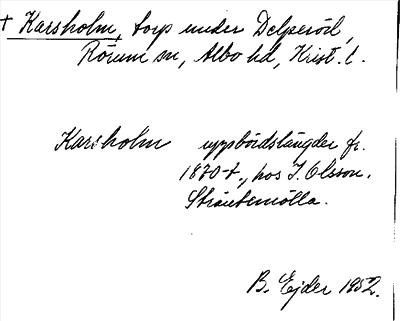 † Karsholm, torp under Delperöd,
Rörum sn, Albo hd, Krist. l.
Karsholm uppbördslängder fr.
1870-t., hos J. Olsson,
Sträntemölla.
B. Ejder 1952.